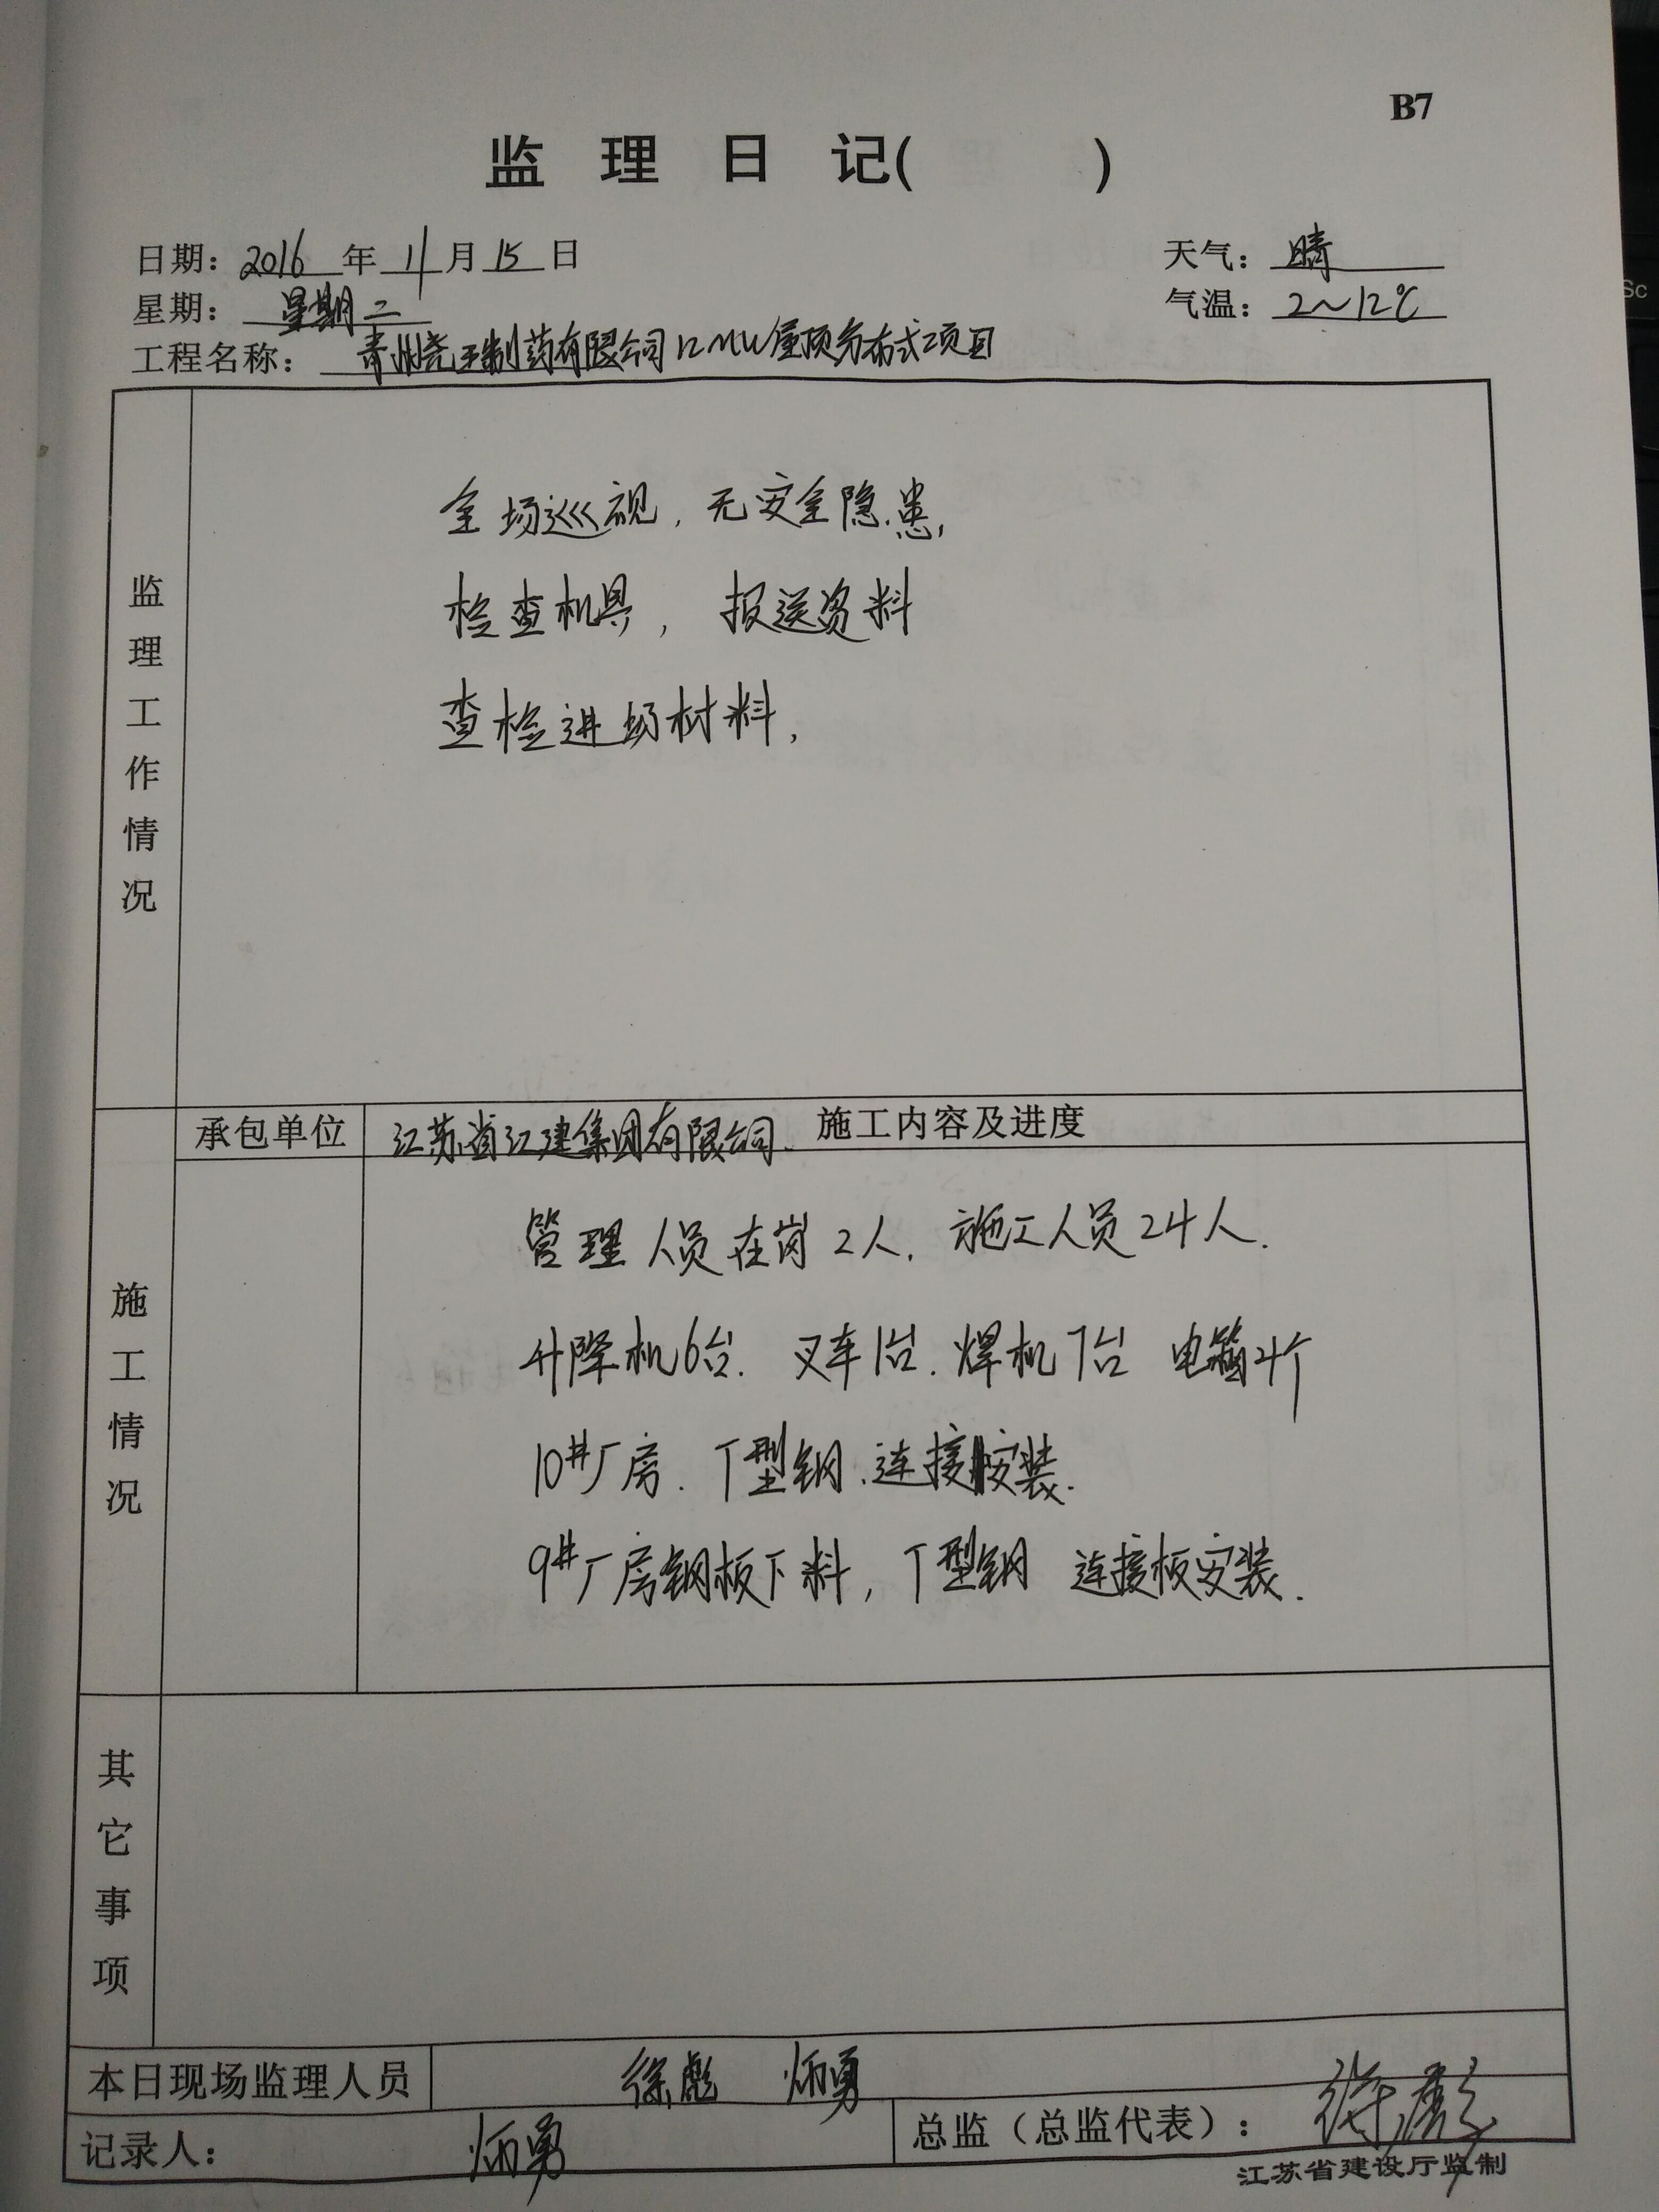 B7
监理日记(    )
日期：2016年11月15日
天气：晴
星期：星期二
气温：2～12℃
工程名称：青州尧王制药有限公司12MW屋顶分布式项目
监理工作情况
全场巡视，无安全隐患，
检查机具，报送资料
查检进场材料，
承包单位
江苏省江建集团有限公司
施工内容及进度
施工情况
管理人员在岗2人．施工人员24人．
升降机6台．叉车1台．焊机7台 电箱4个
10#厂房．T型钢．连接安装．
9#厂房钢板下料，T型钢 连接板安装．
其它事项
本日现场监理人员
徐彪 炳勇
记录人：炳勇
总监（总监代表）：徐彪
江苏省建设厅监制